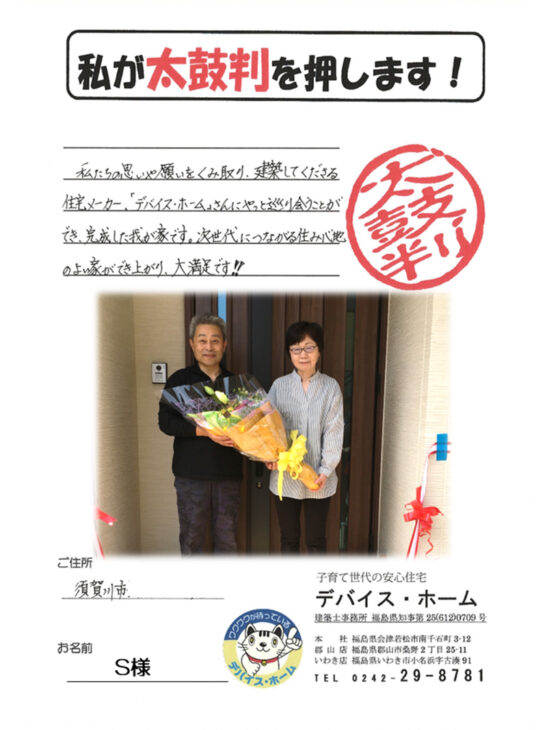 私が太鼓判を押します！
私たちの思いや願いをくみ取り、建築してくださる
住宅メーカー、「デバイス・ホーム」さんにやっと巡り会うことが
でき、完成した我が家です。次世代につながる住み心地
のよい家ができ上がり、大満足です!!
太鼓判
ご住所
須賀川市
お名前
S様
ワクワクが待っている
デバイス・ホーム
子育て世代の安心住宅
デバイス・ホーム
建築士事務所 福島県知事第25(612)0709号
本　社 福島県会津若松市南千石町3-12
郡山店 福島県郡山市桑野2丁目25-11
いわき店 福島県いわき市小名浜字古湊91
TEL 0242-29-8781